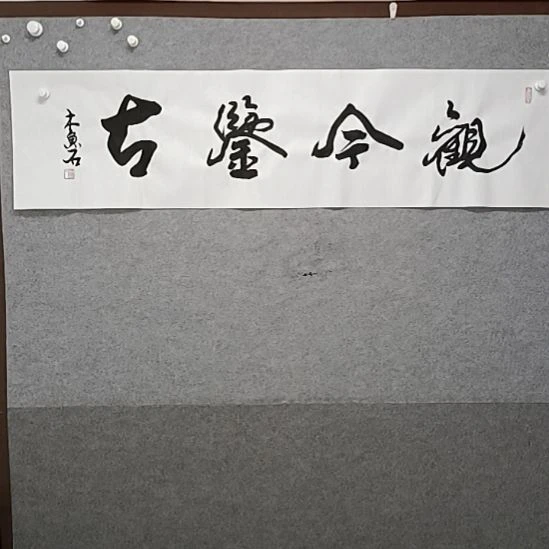 觀今鑒古
木魚石